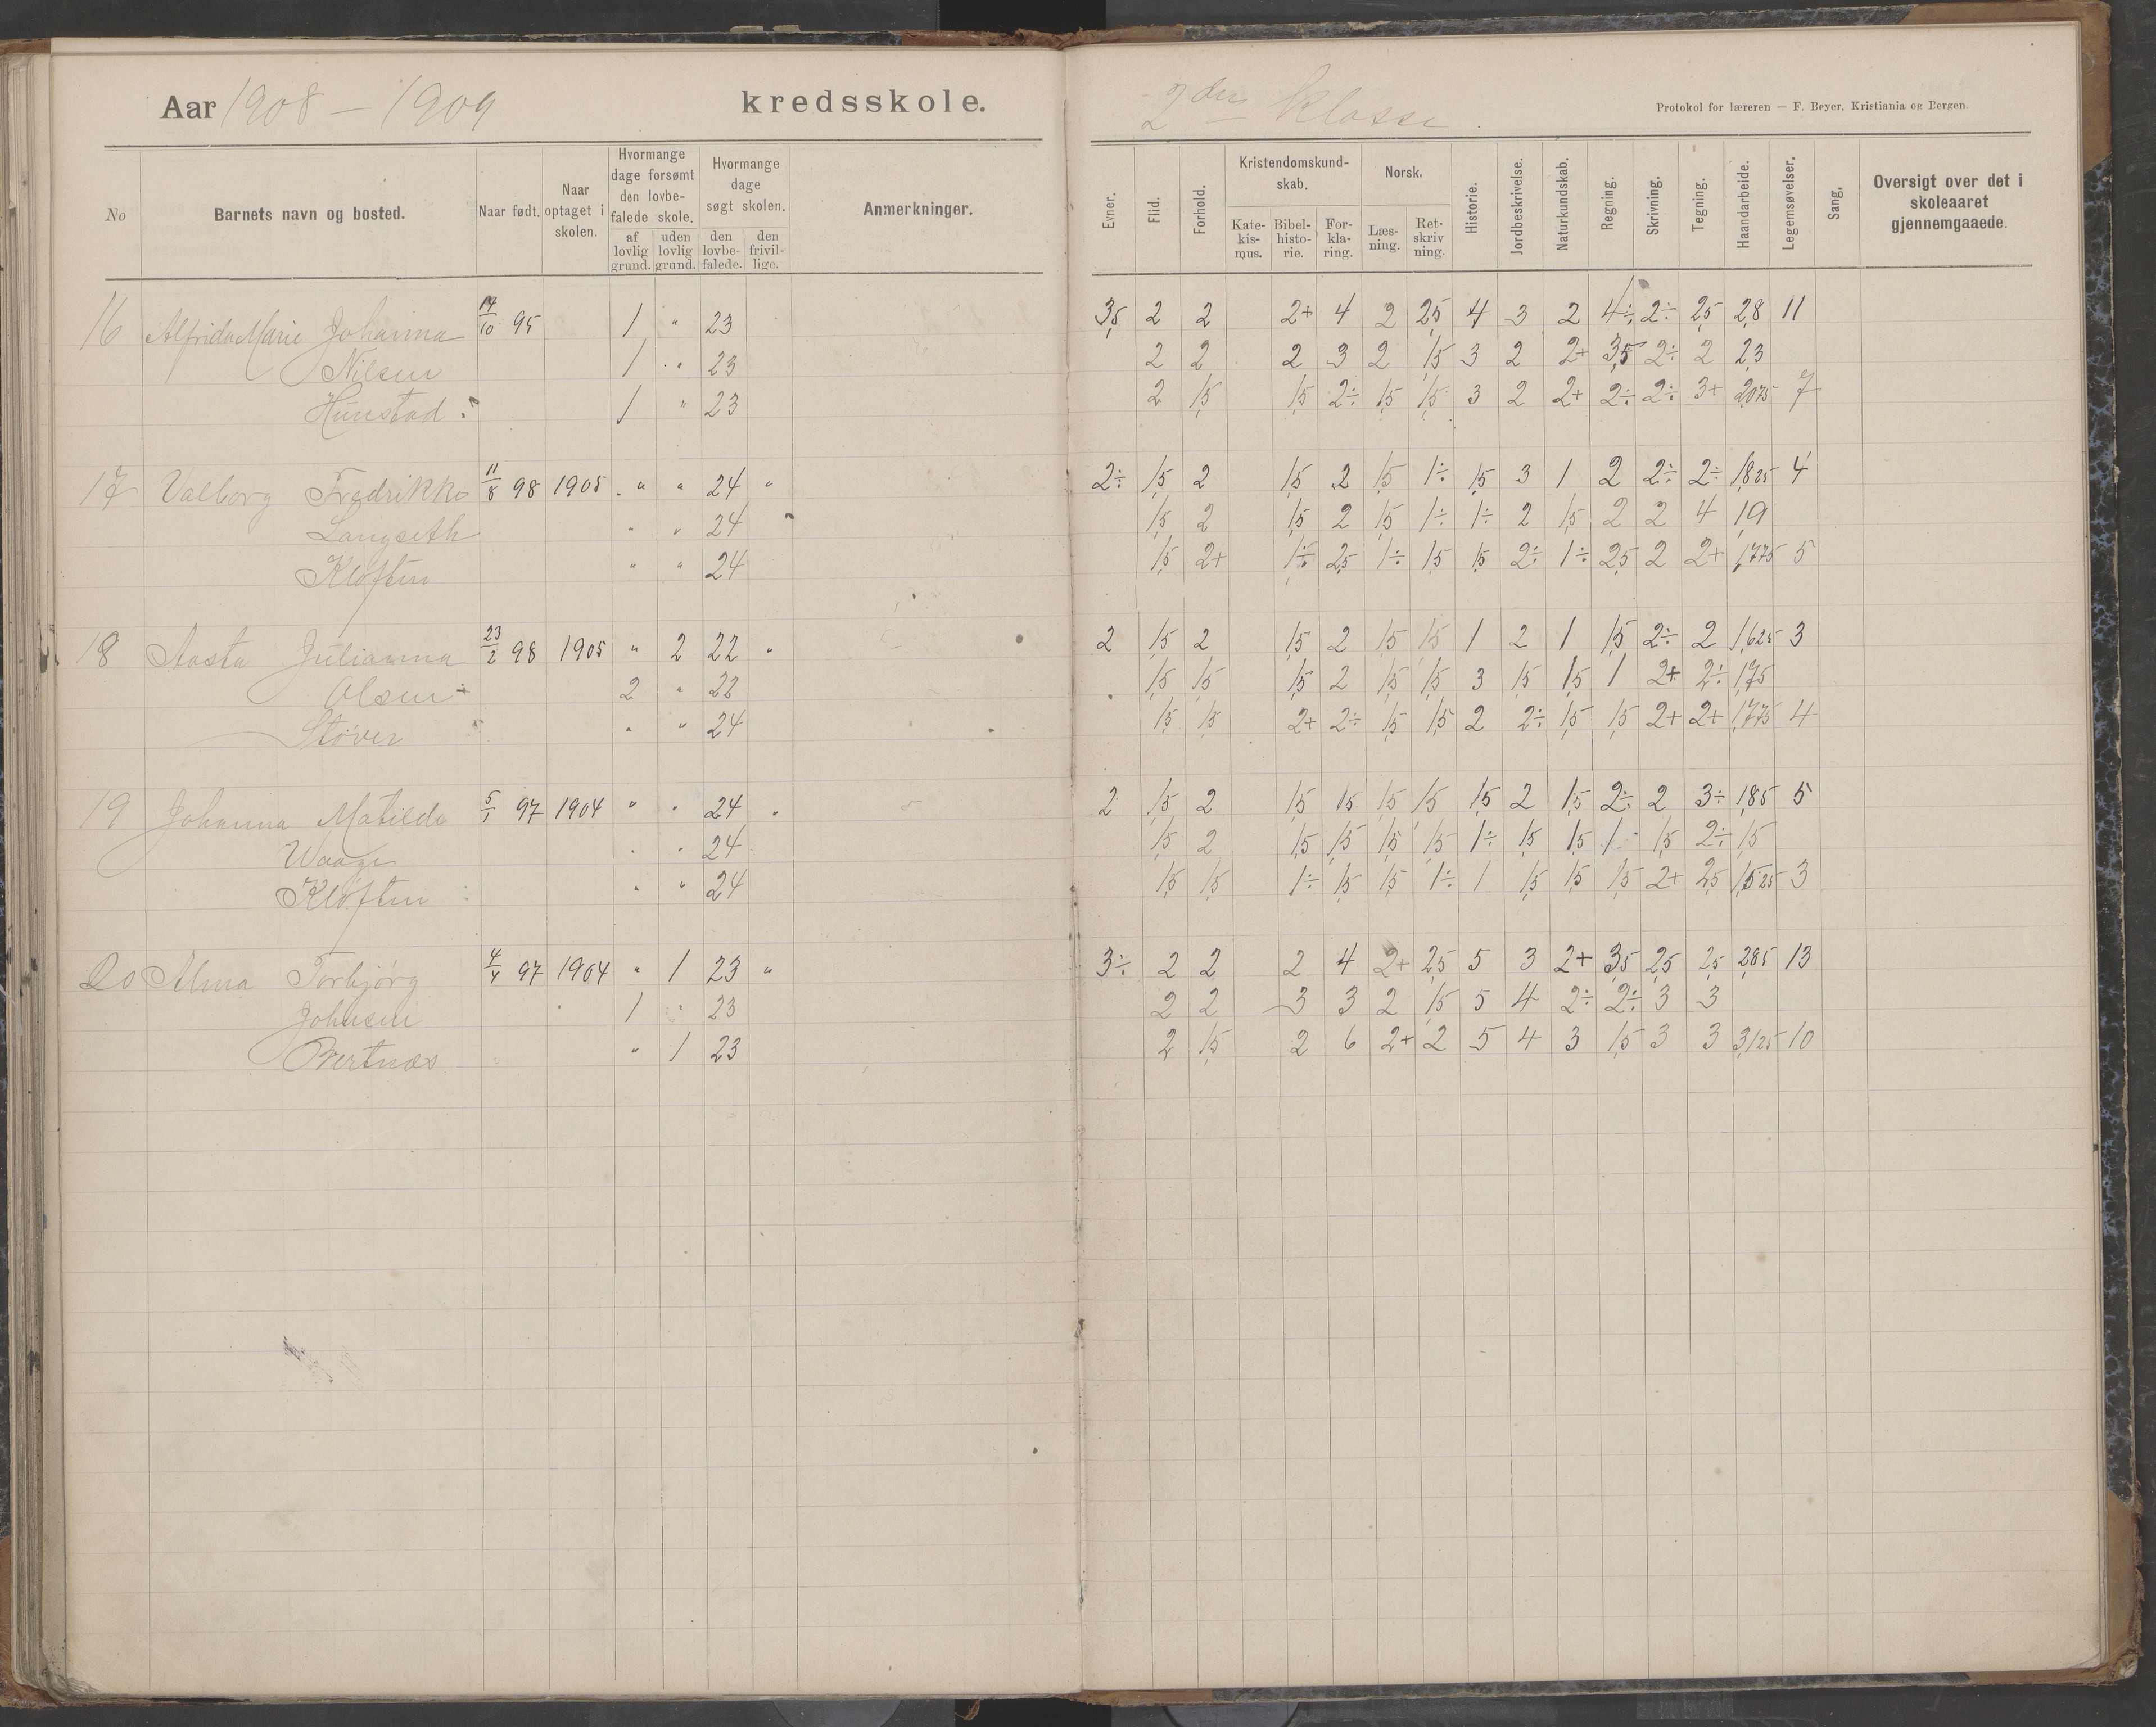 Aar 1908 – 1909 kredsskole. 2den klasse.
Protokol for læreren — F. Beyer, Kristiania og Bergen.
No Barnets navn og bosted. Naar født. Naar optaget i skolen. Hvormange dage forsømt den lovbefalede skole. af lovlig grund. uden lovlig grund. Hvormange dage søgt skolen. den lovbefalede. den frivillige. Anmerkninger. Evner. Flid. Forhold. Kristendomskundskab. Katekismus. Bibelhistorie. Forklaring. Norsk. Læsning. Retskrivning. Historie. Jordbeskrivelse. Naturkundskab. Regning. Skrivning. Tegning. Haandarbeide. Legemsøvelser. Sang. Oversigt over det i skoleaaret gjennemgaaede.
16 Alfrida Marie Johanna 14/10 95 1 " 23 3,5 2 2 2+ 4 2 2,5 4 3 2 4÷ 2÷ 2,5 2,8 11
Nilsen 1 " 23 2 2 2 3 2 1,5 3 2 2+ 3,5 2÷ 2 2,3
Hunstad 1 " 23 2 1,5 1,5 2÷ 1,5 1,5 3 2 2+ 2÷ 2÷ 3+ 2,075 7
17 Valborg Fredrikke 11/8 98 1905 " " 24 " 2÷ 1,5 2 1,5 2 1,5 1÷ 1,5 3 1 2 2÷ 2÷ 1,825 4
Langseth " " 24 1,5 2 1,5 2 1,5 1÷ 1÷ 2 1,5 2 2 4 1,9
Kløften " " 24 1,5 2+ 1÷ 2,5 1÷ 1,5 1,5 2÷ 1÷ 2,5 2 2+ 1,775 5
18 Aasta Julianna 23/2 98 1905 " 2 22 " 2 1,5 2 1,5 2 1,5 1,5 1 2 1 1,5 2÷ 2 1,625 3
Olsen 2 " 22 1,5 1,5 1,5 2 1,5 1,5 3 1,5 1,5 1 2+ 2÷ 1,75
Støver " " 24 1,5 1,5 2+ 2÷ 1,5 1,5 2 2÷ 1,5 1,5 2+ 2+ 1,775 4
19 Johanna Matilde 5/1 97 1904 " " 24 " 2 1,5 2 1,5 1,5 1,5 1,5 1,5 2 1,5 2÷ 2 3÷ 1,85 5
Waage " " 24 1,5 2 1,5 1,5 1,5 1,5 1÷ 1,5 1,5 1 1,5 2÷ 1,5
Kløften " " 24 1,5 1,5 1÷ 1,5 1,5 1÷ 1 1,5 1,5 1,5 2+ 2,5 1,525 3
20 Alma Torbjørg 4/4 97 1904 " 1 23 " 3÷ 2 2 2 4 2+ 2,5 5 3 2+ 3,5 2,5 2,5 2,85 13
Johnsen 1 " 23 2 2 3 3 2 1,5 5 4 2÷ 2÷ 3 3
Bertnæs " 1 23 2 1,5 2 6 2+ 2 5 4 3 1,5 3 3 3,125 10